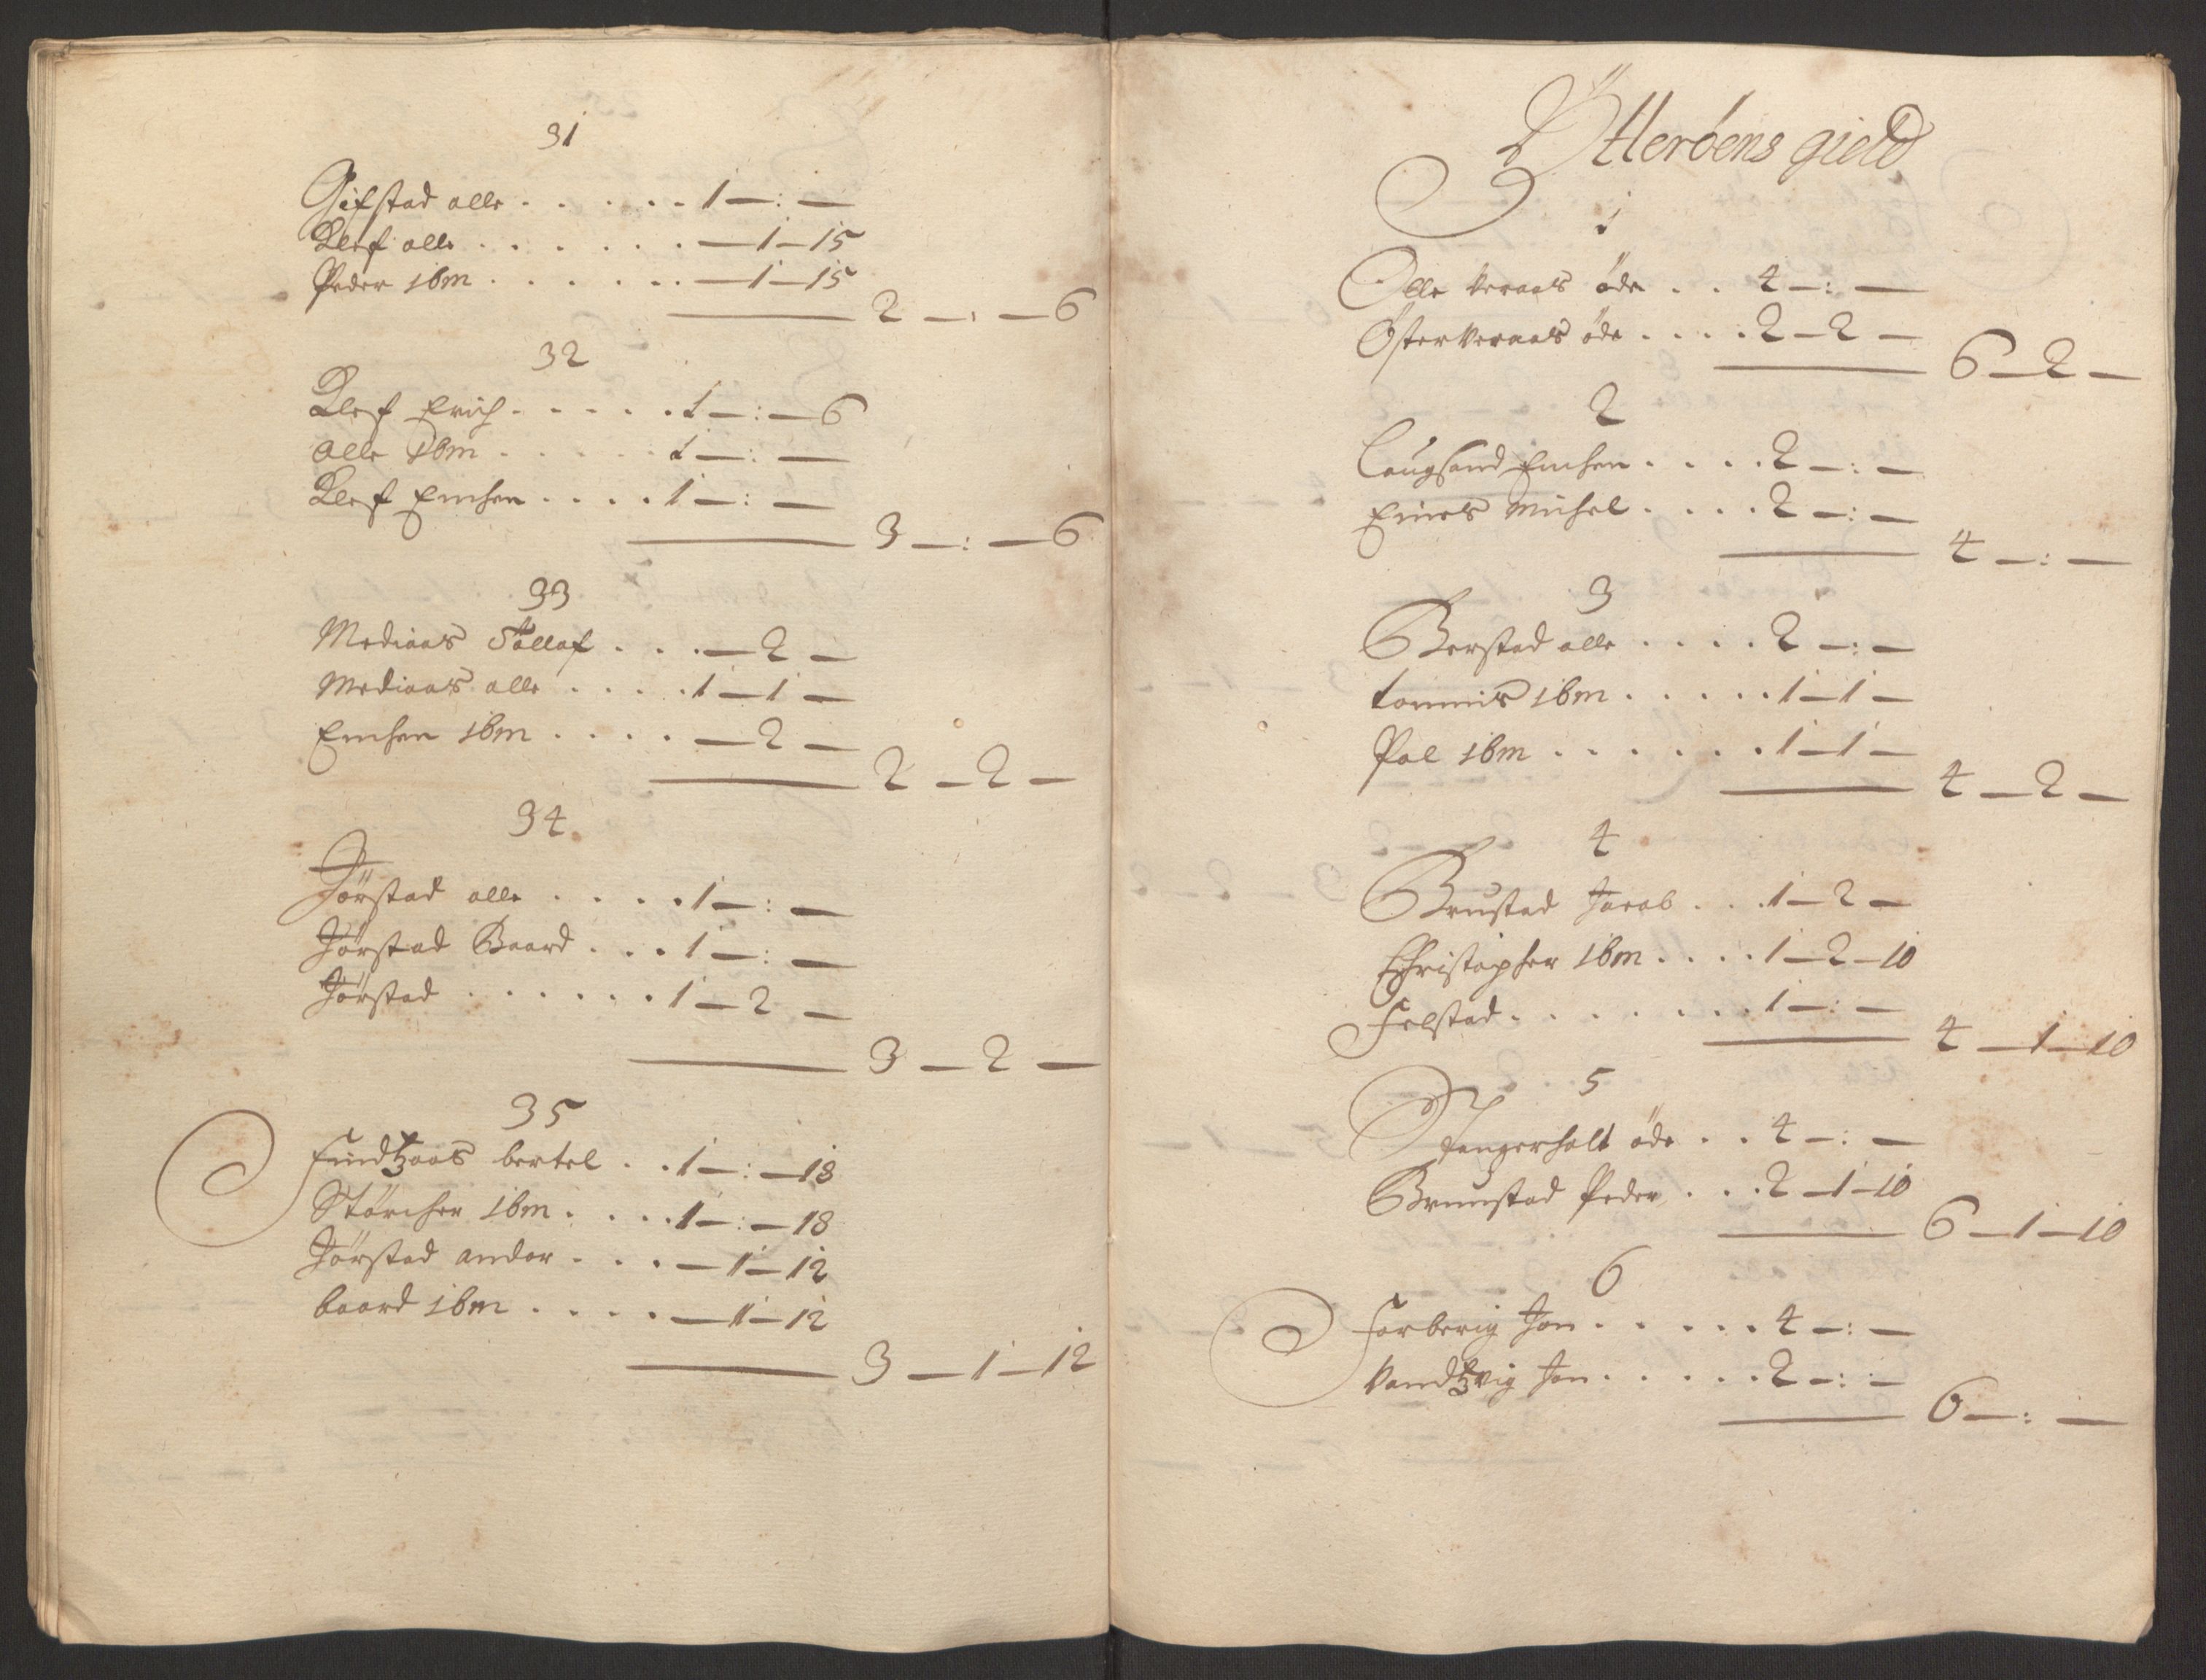 31
Gifstad olle . . . . . 1 — : —
Klef olle . . . . . . — 1 — 15
Peder ibm . . . . . . — 1 — 15
2 — : — 6
32
Klef Erich . . . . . 1 — : — 6
olle ibm . . . . . 1 — : —
Klef Enchen . . . . 1 — : —
3 — : — 6
33
Mediaas Töllof . . . — 2 —
Mediaas olle . . . . 1 — 1 —
Enchen ibm . . . . — 2 —
2 — 2 —
34
Jörstad olle . . . . 1 — : —
Jörstad Baard . . . 1 — : —
Jörstad . . . . . . 1 — 2 —
3 — 2 —
35
Findtzaas bertel . . 1 — : — 18
Störcher ibm . . . . 1 — : — 18
Jörstad andor . . . — 1 — 12
baard ibm . . . . — 1 — 12
3 — 1 — 12
Ytteröens gield
1
Olle Veraas öde . . 4 — : —
Öster Veraas öde . . . . 2 — 2 —
6 — 2 —
2
Laugsand Enchen . . . . 2 — : —
Einers Michel . . . . 2 — : —
4 — : —
3
Berstad olle . . . . 2 — : —
tommis ibm . . . . . 1 — 1 —
Pol ibm . . . . . . 1 — 1 —
4 — 2 —
4
Brustad Jacob . . . 1 — 2 —
Christopher ibm . . . . 1 — 2 — 10
Felstad . . . . . . . 1 — : —
4 — 1 — 10
5
Tangerholt öde . . 4 — : —
Brunstad Peder . . . 2 — 1 — 10
6 — 1 — 10
6
Forberig Jon . . . . . 4 — : —
Vandtzvig Jon . . . . . 2 — : —
6 — : —